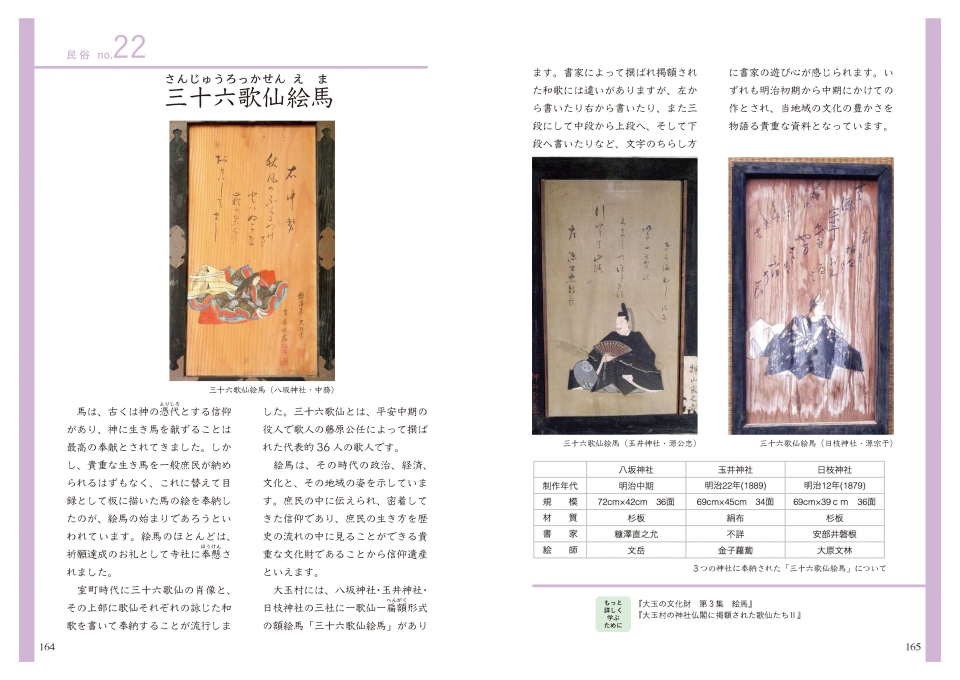 民俗 no.22
さんじゅうろっかせん え ま
三十六歌仙絵馬
三十六歌仙絵馬（八坂神社・中務）
馬は、古くは神の憑代とする信仰
よりしろ
があり、神に生き馬を献ずることは
最高の奉献とされてきました。しか
し、貴重な生き馬を一般庶民が納め
られるはずもなく、これに替えて目
録として板に描いた馬の絵を奉納し
たのが、絵馬の始まりであろうとい
われています。絵馬のほとんどは、
祈願達成のお礼として寺社に奉懸さ
ほうけん
れました。
室町時代に三十六歌仙の肖像と、
その上部に歌仙それぞれの詠じた和
歌を書いて奉納することが流行しま
した。三十六歌仙とは、平安中期の
役人で歌人の藤原公任によって撰ば
れた代表的 36 人の歌人です。
絵馬は、その時代の政治、経済、
文化と、その地域の姿を示していま
す。庶民の中に伝えられ、密着して
きた信仰であり、庶民の生き方を歴
史の流れの中に見ることができる貴
重な文化財であることから信仰遺産
といえます。
大玉村には、八坂神社・玉井神社・
日枝神社の三社に一歌仙一扁額形式
へんがく
の額絵馬「三十六歌仙絵馬」があり
164
ます。書家によって撰ばれ掲額され
た和歌には違いがありますが、左か
ら書いたり右から書いたり、また三
段にして中段から上段へ、そして下
段へ書いたりなど、文字のちらし方
に書家の遊び心が感じられます。い
ずれも明治初期から中期にかけての
作とされ、当地域の文化の豊かさを
物語る貴重な資料となっています。
三十六歌仙絵馬（玉井神社・源公忠）
三十六歌仙絵馬（日枝神社・源宗于）
八坂神社 玉井神社 日枝神社
制作年代 明治中期 明治22年(1889) 明治12年(1879)
規 模 72cm×42cm 36面 69cm×45cm 34面 69cm×39ｃｍ 36面
材 質 杉板 絹布 杉板
書 家 糠澤直之允 不詳 安部井磐根
絵 師 文岳 金子蘿蔔 大原文林
３つの神社に奉納された「三十六歌仙絵馬」について
もっと
詳しく
学ぶ
ために
『大玉の文化財 第３集 絵馬』
『大玉村の神社仏閣に掲額された歌仙たちⅡ』
165